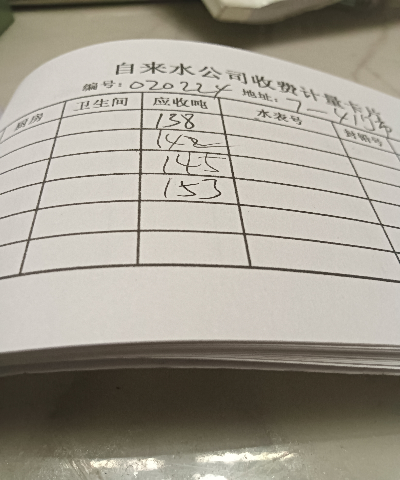 自来水公司收费计量卡片
编号:020224 地址:7
厨房 卫生间 应收吨 水表号 封铅号
138
142
145
153